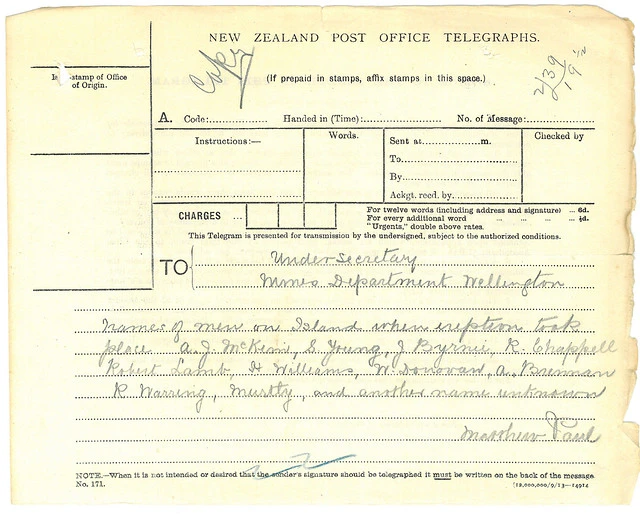 NEW ZEALAND POST OFFICE TELEGRAPHS.
Copy
(If prepaid in stamps, affix stamps in this space.)
Stamp of Office
of Origin.
A. Code: Handed in (Time): No. of Message:
Instructions:— Words. Sent at m. Checked by
To
By
Ackgt. recd. by
CHARGES ... For twelve words (including address and signature) ... 6d.
For every additional word ... ... ... ½d.
"Urgents," double above rates.
This Telegram is presented for transmission by the undersigned, subject to the authorized conditions.
TO Under Secretary
Mines Department Wellington
Names of men on Island when eruption took
place A. J. McKim, S Young, J Byrne, R. Chappell
Robert Lamb, H Williams, W Donovan, A. Brennan
R Warring, and another name unknown
Matthew Paul
NOTE.—When it is not intended or desired that the sender's signature should be telegraphed it must be written on the back of the message
No. 171. [12,000,000/9/13—14914